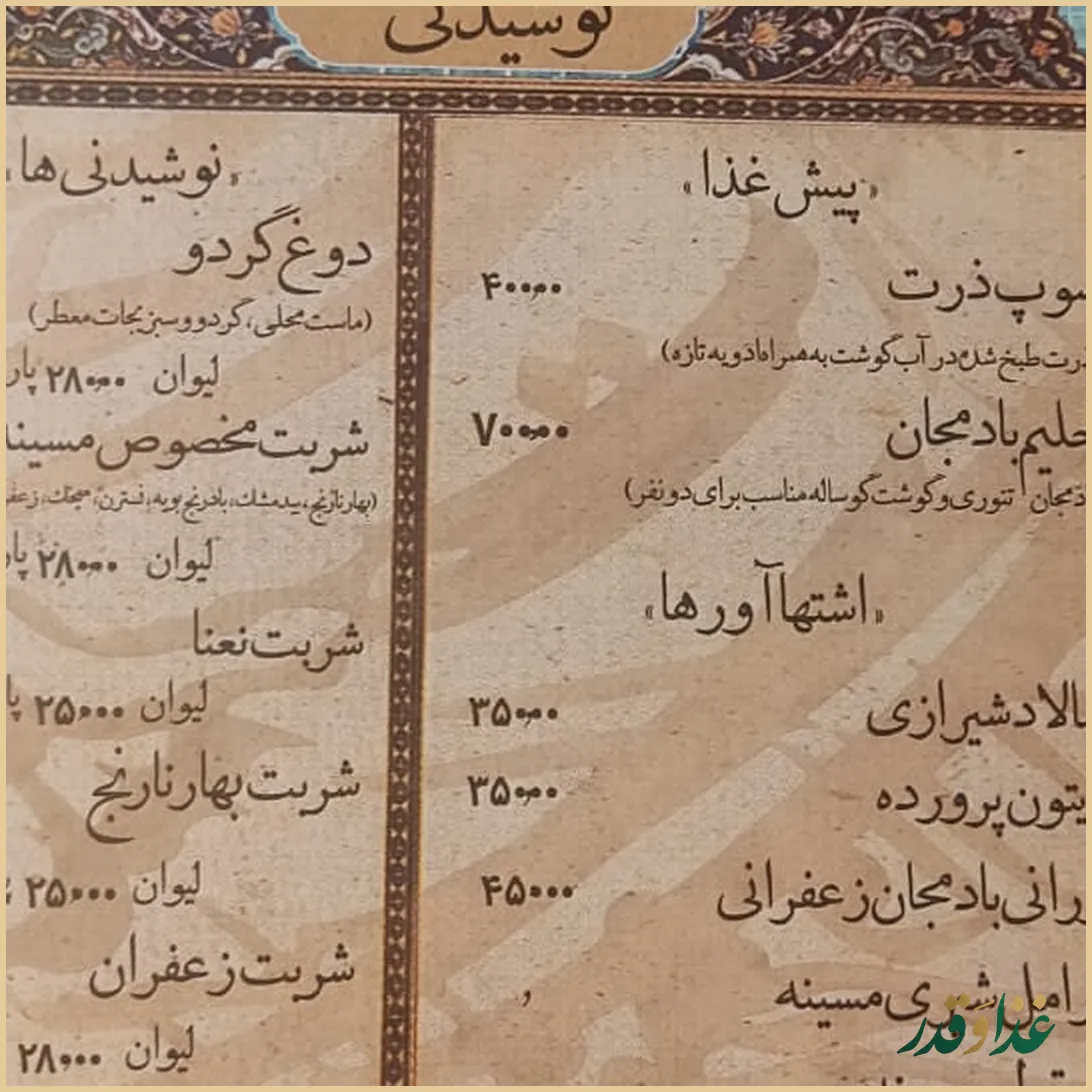 نوشیدنی
«پیش غذا»
سوپ ذرت ۴۰۰۰۰۰
ذرت طبخ شده در آب گوشت به همراه ادویه تازه)
حلیم بادمجان ۷۰۰۰۰۰
بادمجان تنوری و گوشت گوساله مناسب برای دو نفر)
«اشتهاآورها»
سالاد شیرازی ۳۵۰۰۰۰
زیتون پرورده ۳۵۰۰۰۰
بورانی بادمجان زعفرانی ۴۵۰۰۰۰
شوری مسینه
«نوشیدنی ها»
دوغ گردو
(ماست محلی، گردو و سبزیجات معطر)
لیوان ۲۸۰۰۰۰
شربت مخصوص مسینه
(بهارنارنج، بیدمشک، بادرنج بویه، نسترن،
لیوان ۲۸۰۰۰۰
شربت نعنا
لیوان ۲۵۰۰۰۰
شربت بهارنارنج
لیوان ۲۵۰۰۰۰
شربت زعفران
لیوان ۲۸۰۰۰۰
غذا و قدر